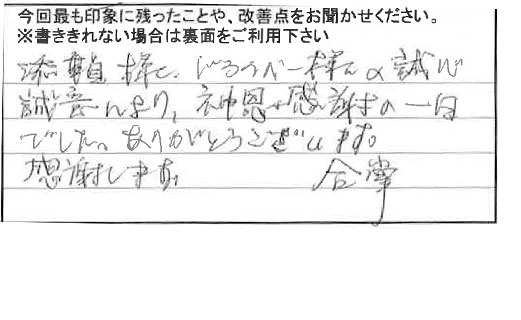 今回最も印象に残ったことや、改善点をお聞かせください。
※書ききれない場合は裏面をご利用下さい
様と、じろうべー様の誠心
誠意により、神恩感謝の一日
でした。ありがとうございます。
感謝します。 合掌